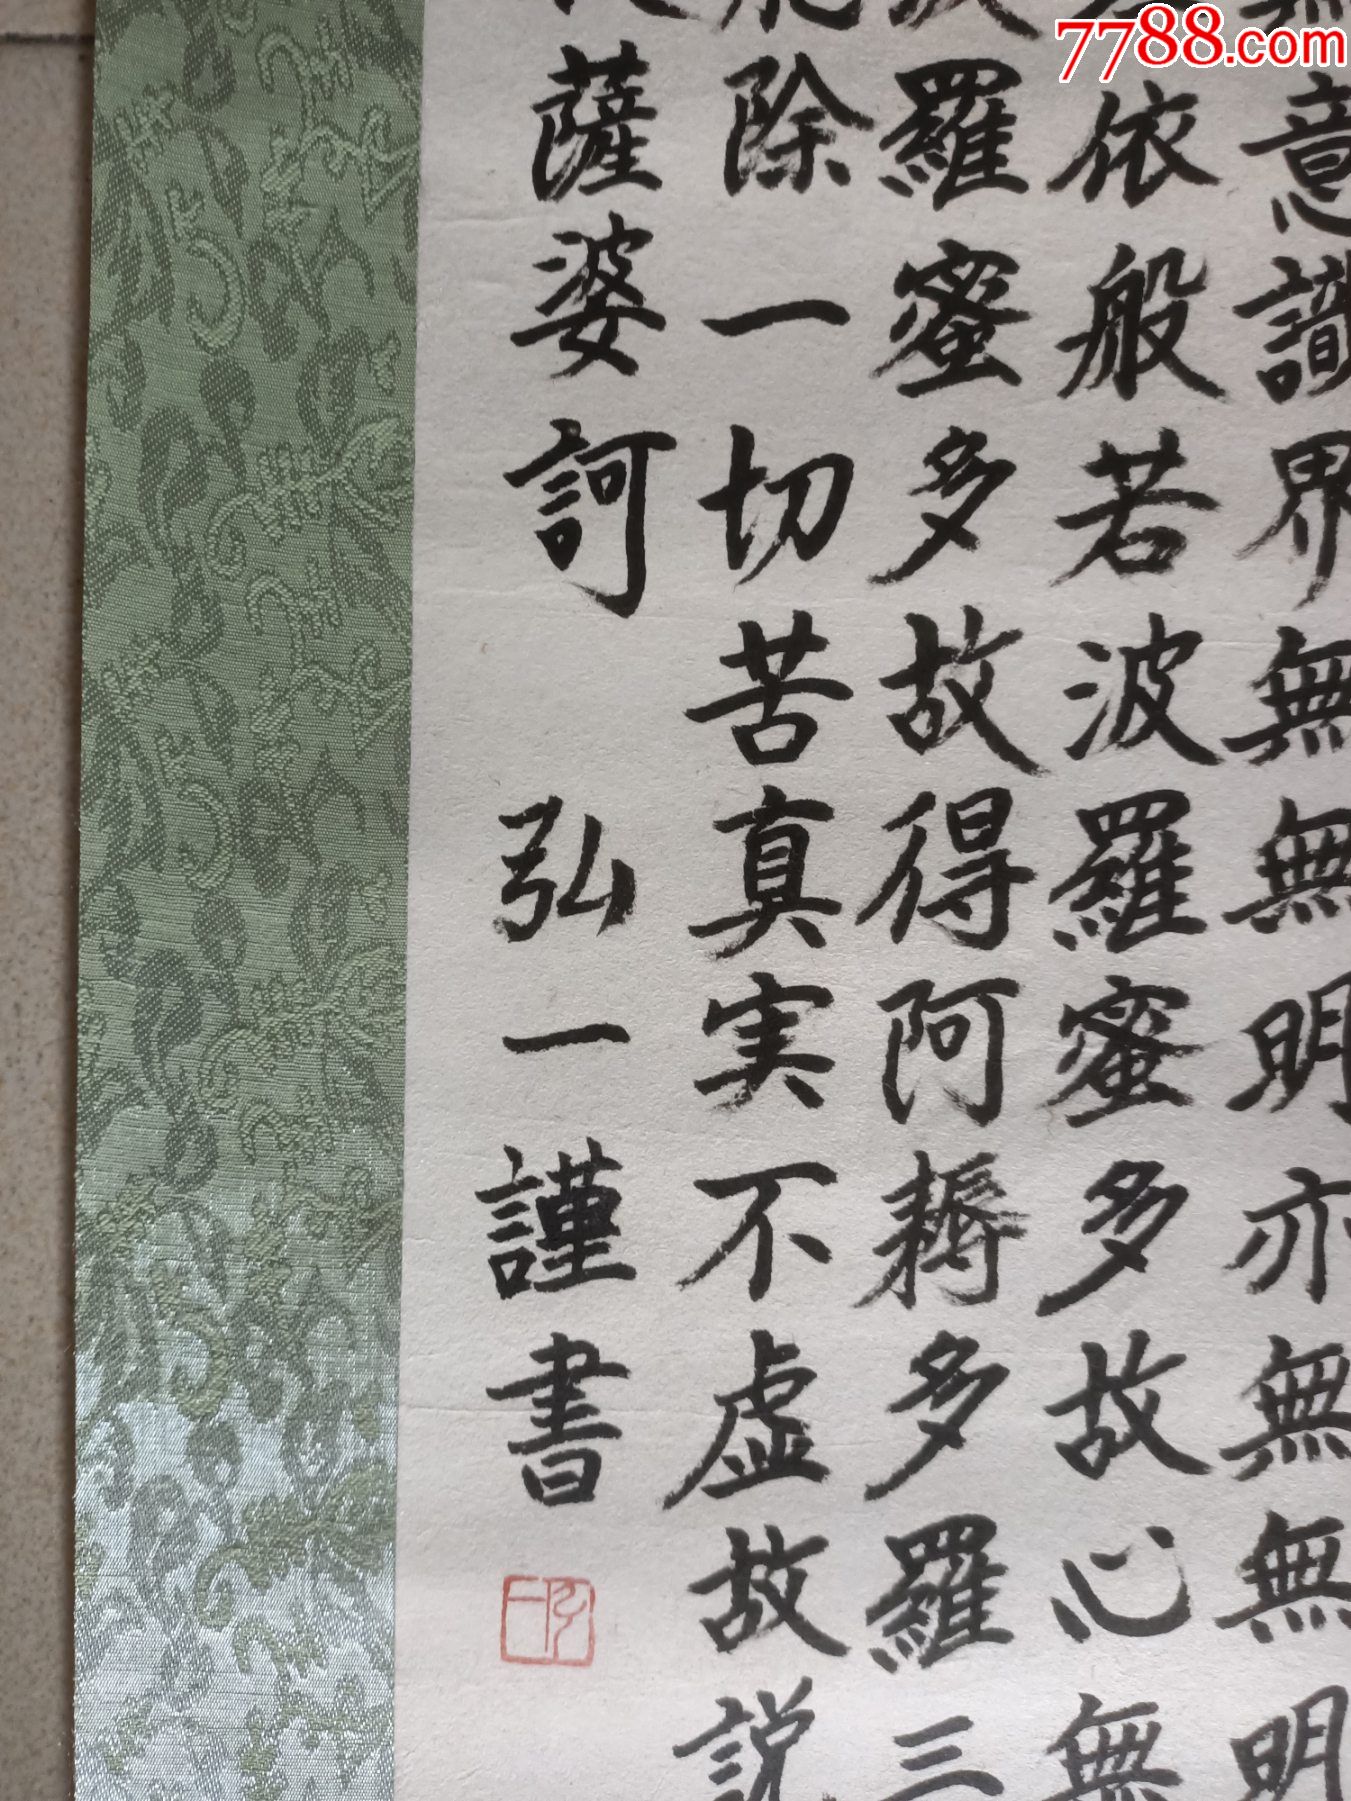 意識界無無明亦無無明
依般若波羅蜜多故心無
羅蜜多故得阿耨多羅三
除一切苦真实不虛故説
薩婆訶
弘一謹書
7788.com